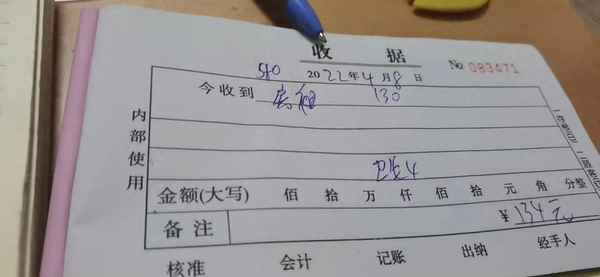 收 据
No 083471
510 2022年4月8日
今收到 房租 130
内部使用
卫生 4
金额(大写) 佰 拾 万 仟 佰 拾 元 角 分整
备注 ¥134元
核准 会计 记账 出纳 经手人